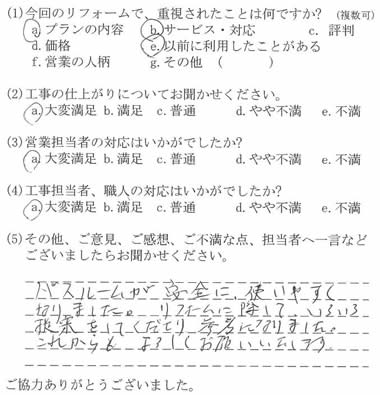 (1)今回のリフォームで、重視されたことは何ですか? (複数可)
a.プランの内容 b.サービス・対応 c. 評判
d.価格 e.以前に利用したことがある
f.営業の人柄 g.その他 ( )
(2)工事の仕上がりについてお聞かせください。
a.大変満足 b.満足 c.普通 d.やや不満 e.不満
(3)営業担当者の対応はいかがでしたか?
a.大変満足 b.満足 c.普通 d.やや不満 e.不満
(4)工事担当者、職人の対応はいかがでしたか?
a.大変満足 b.満足 c.普通 d.やや不満 e.不満
(5)その他、ご意見、ご感想、ご不満な点、担当者へ一言など
ございましたらお聞かせください。
バスルームが安全に、使いやすく
なりました。リフォームに際して、いろいろ
提案をしてくださり参考になりました。
これからも よろしくお願いいたします
ご協力ありがとうございました。